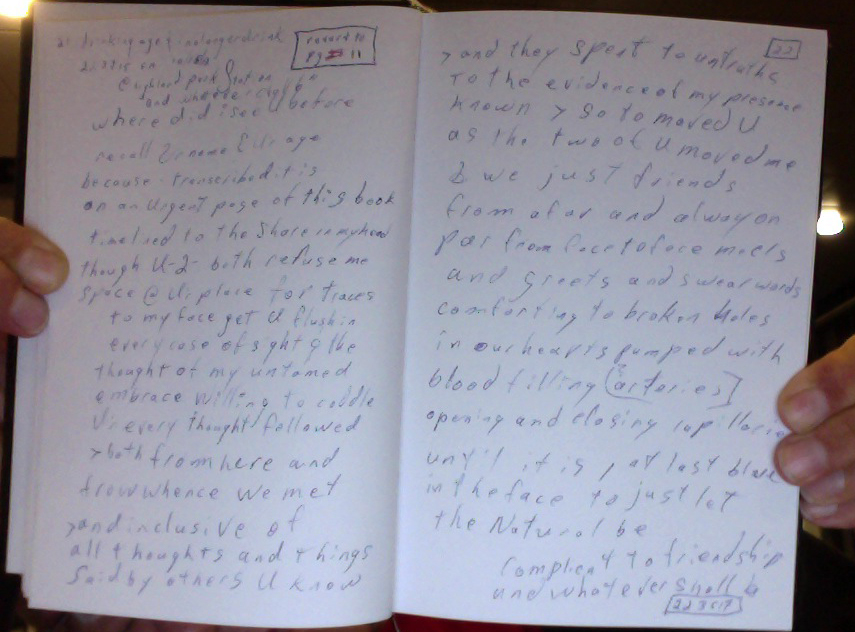 revert to
pg 11
drinking age
"and where
where did i see U before
recall Ur name
because transcribed it is
on an Urgent page of this book
timelined to the Share in my head
though U-2- both refuse me
space @ Ur place for traces
to my face get U flush in
every case of sight & the
thought of my untamed
embrace willing to coddle
Ur every thought followed
> both from here and
from whence we met
> and inclusive of
all thoughts and things
said by others U know
22
> and they spert to untruths
to the evidence of my presence
known > So to moved U
as the two of U moved me
& we just friends
from afar and alway on
par from face to face meets
and greets and swear words
comforting to broken holes
in our hearts pumped with
blood filling (arteries]
opening and closing
until it is at last blue
in the face to just let
the Natural be
complient to friendship
and whatever shall b